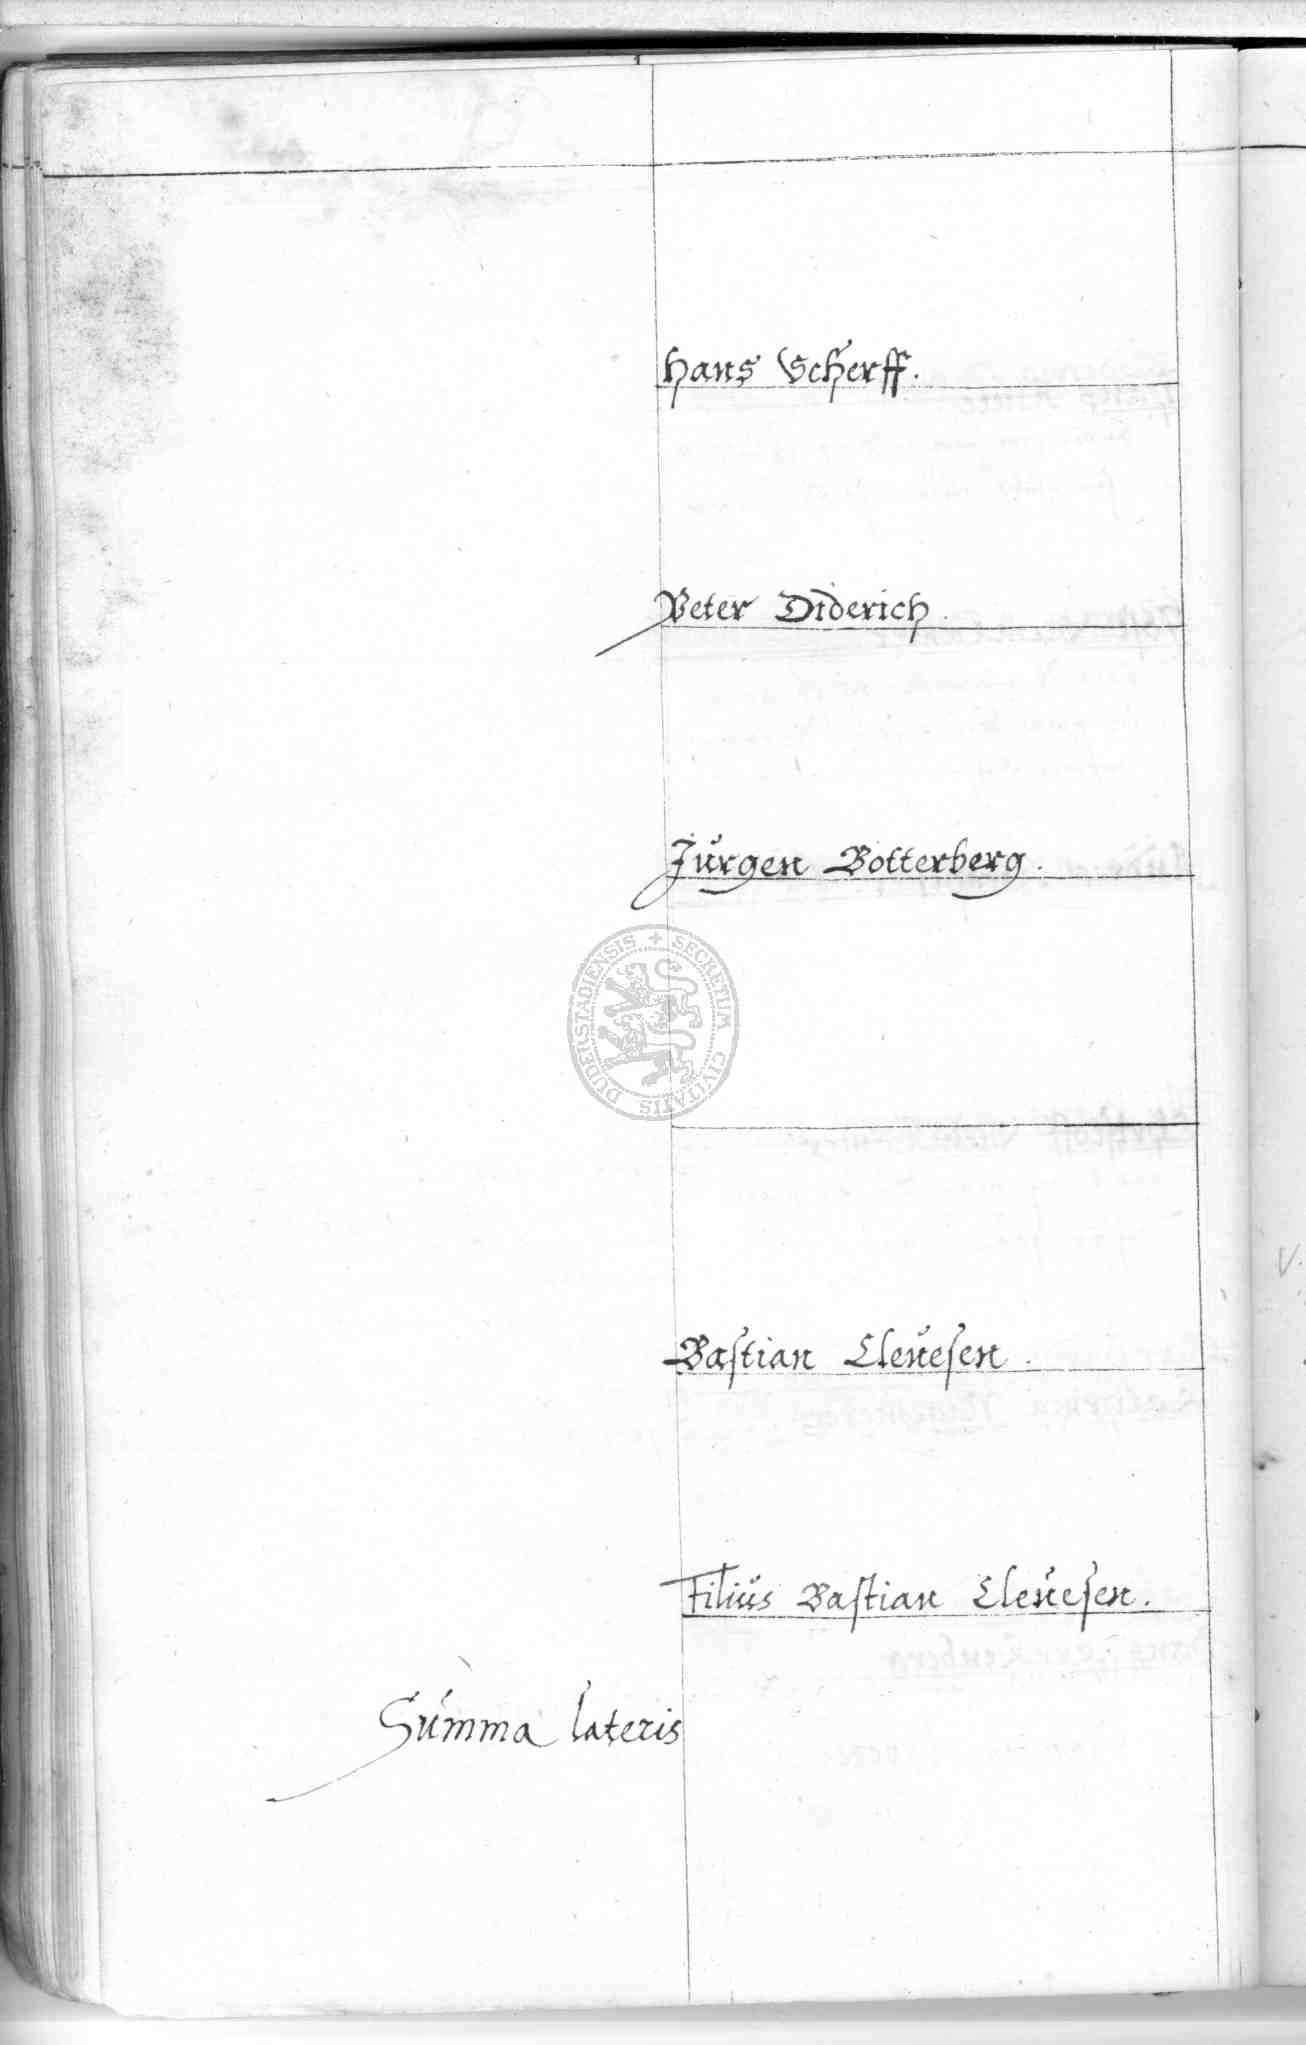 Hans Scherff.
Peter Diderich.
Jürgen Botterberg.
DUDERSTADIENSIS + SECRETUM CIVITATIS
Bastian Cleuesen.
Filius Bastian Cleuesen.
Summa lateris